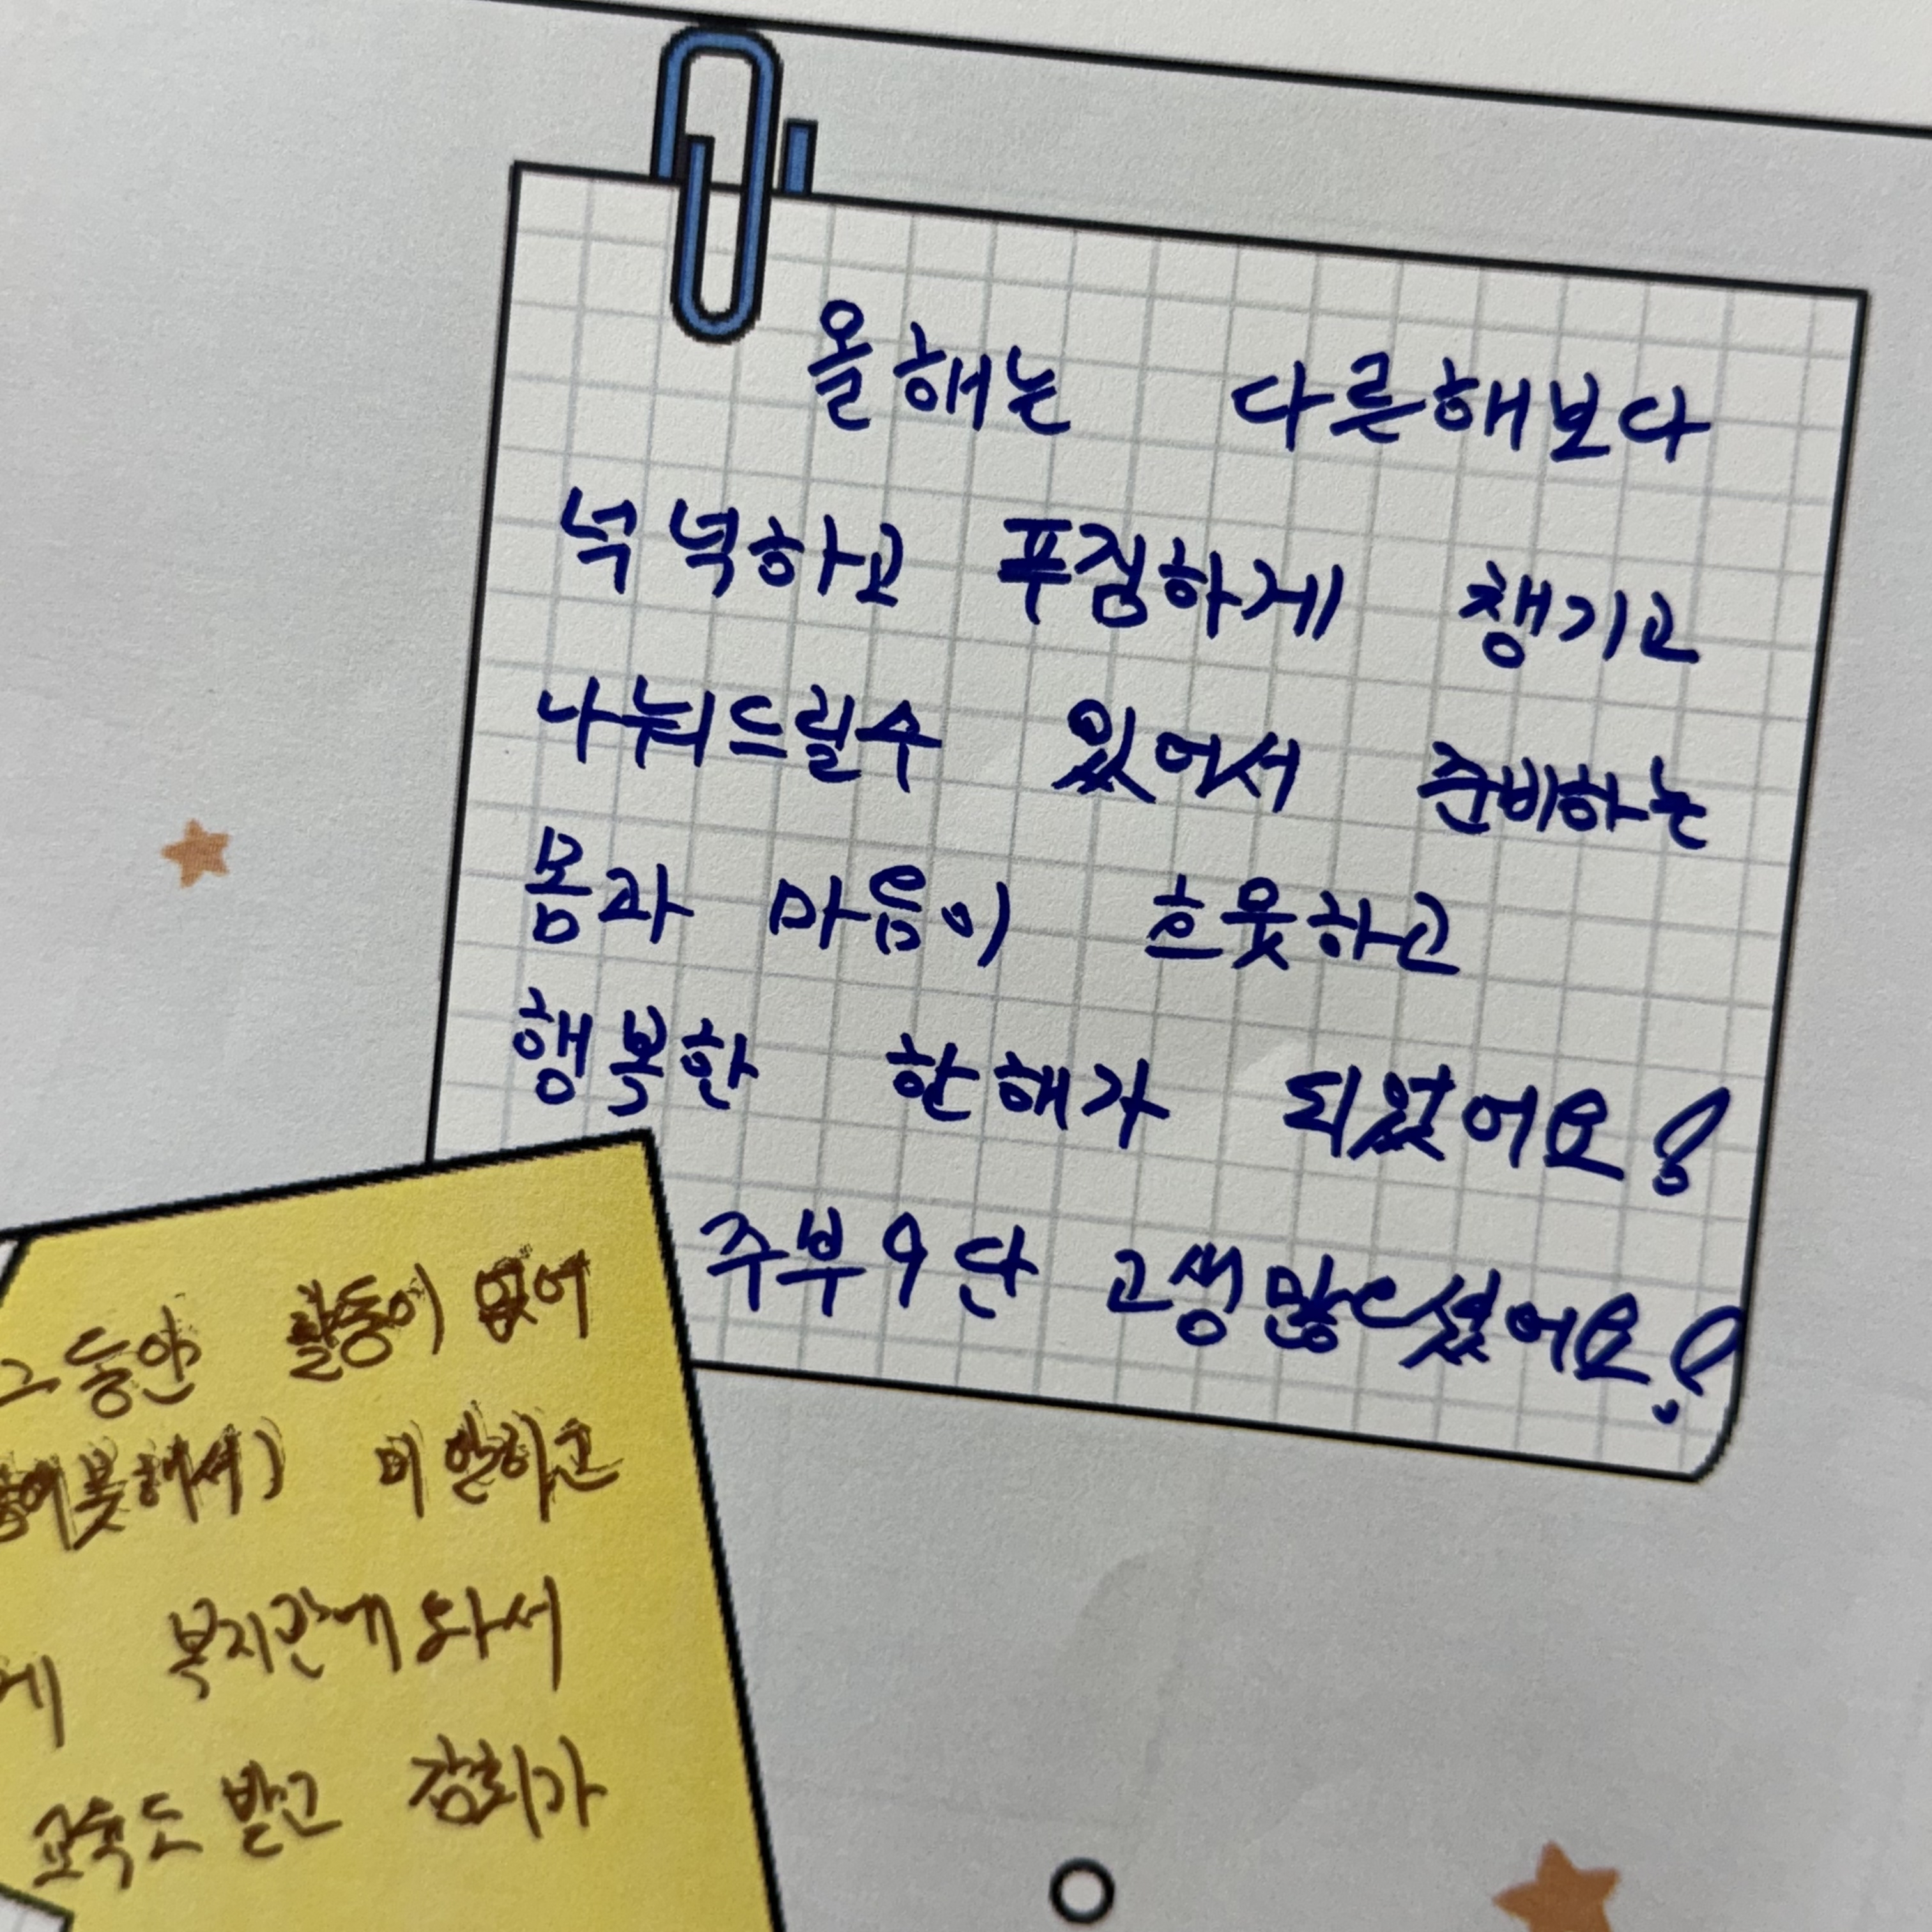 올해는 다른해보다
넉넉하고 푸짐하게 챙기고
나눠드릴수 있어서 준비하는
몸과 마음이 흐뭇하고
행복한 한해가 되었어요!
주부9단 고생많으셨어요!
그동안 활동이 없어
못해서) 미안하고
게 복지관에와서
교육도 받고 감회가